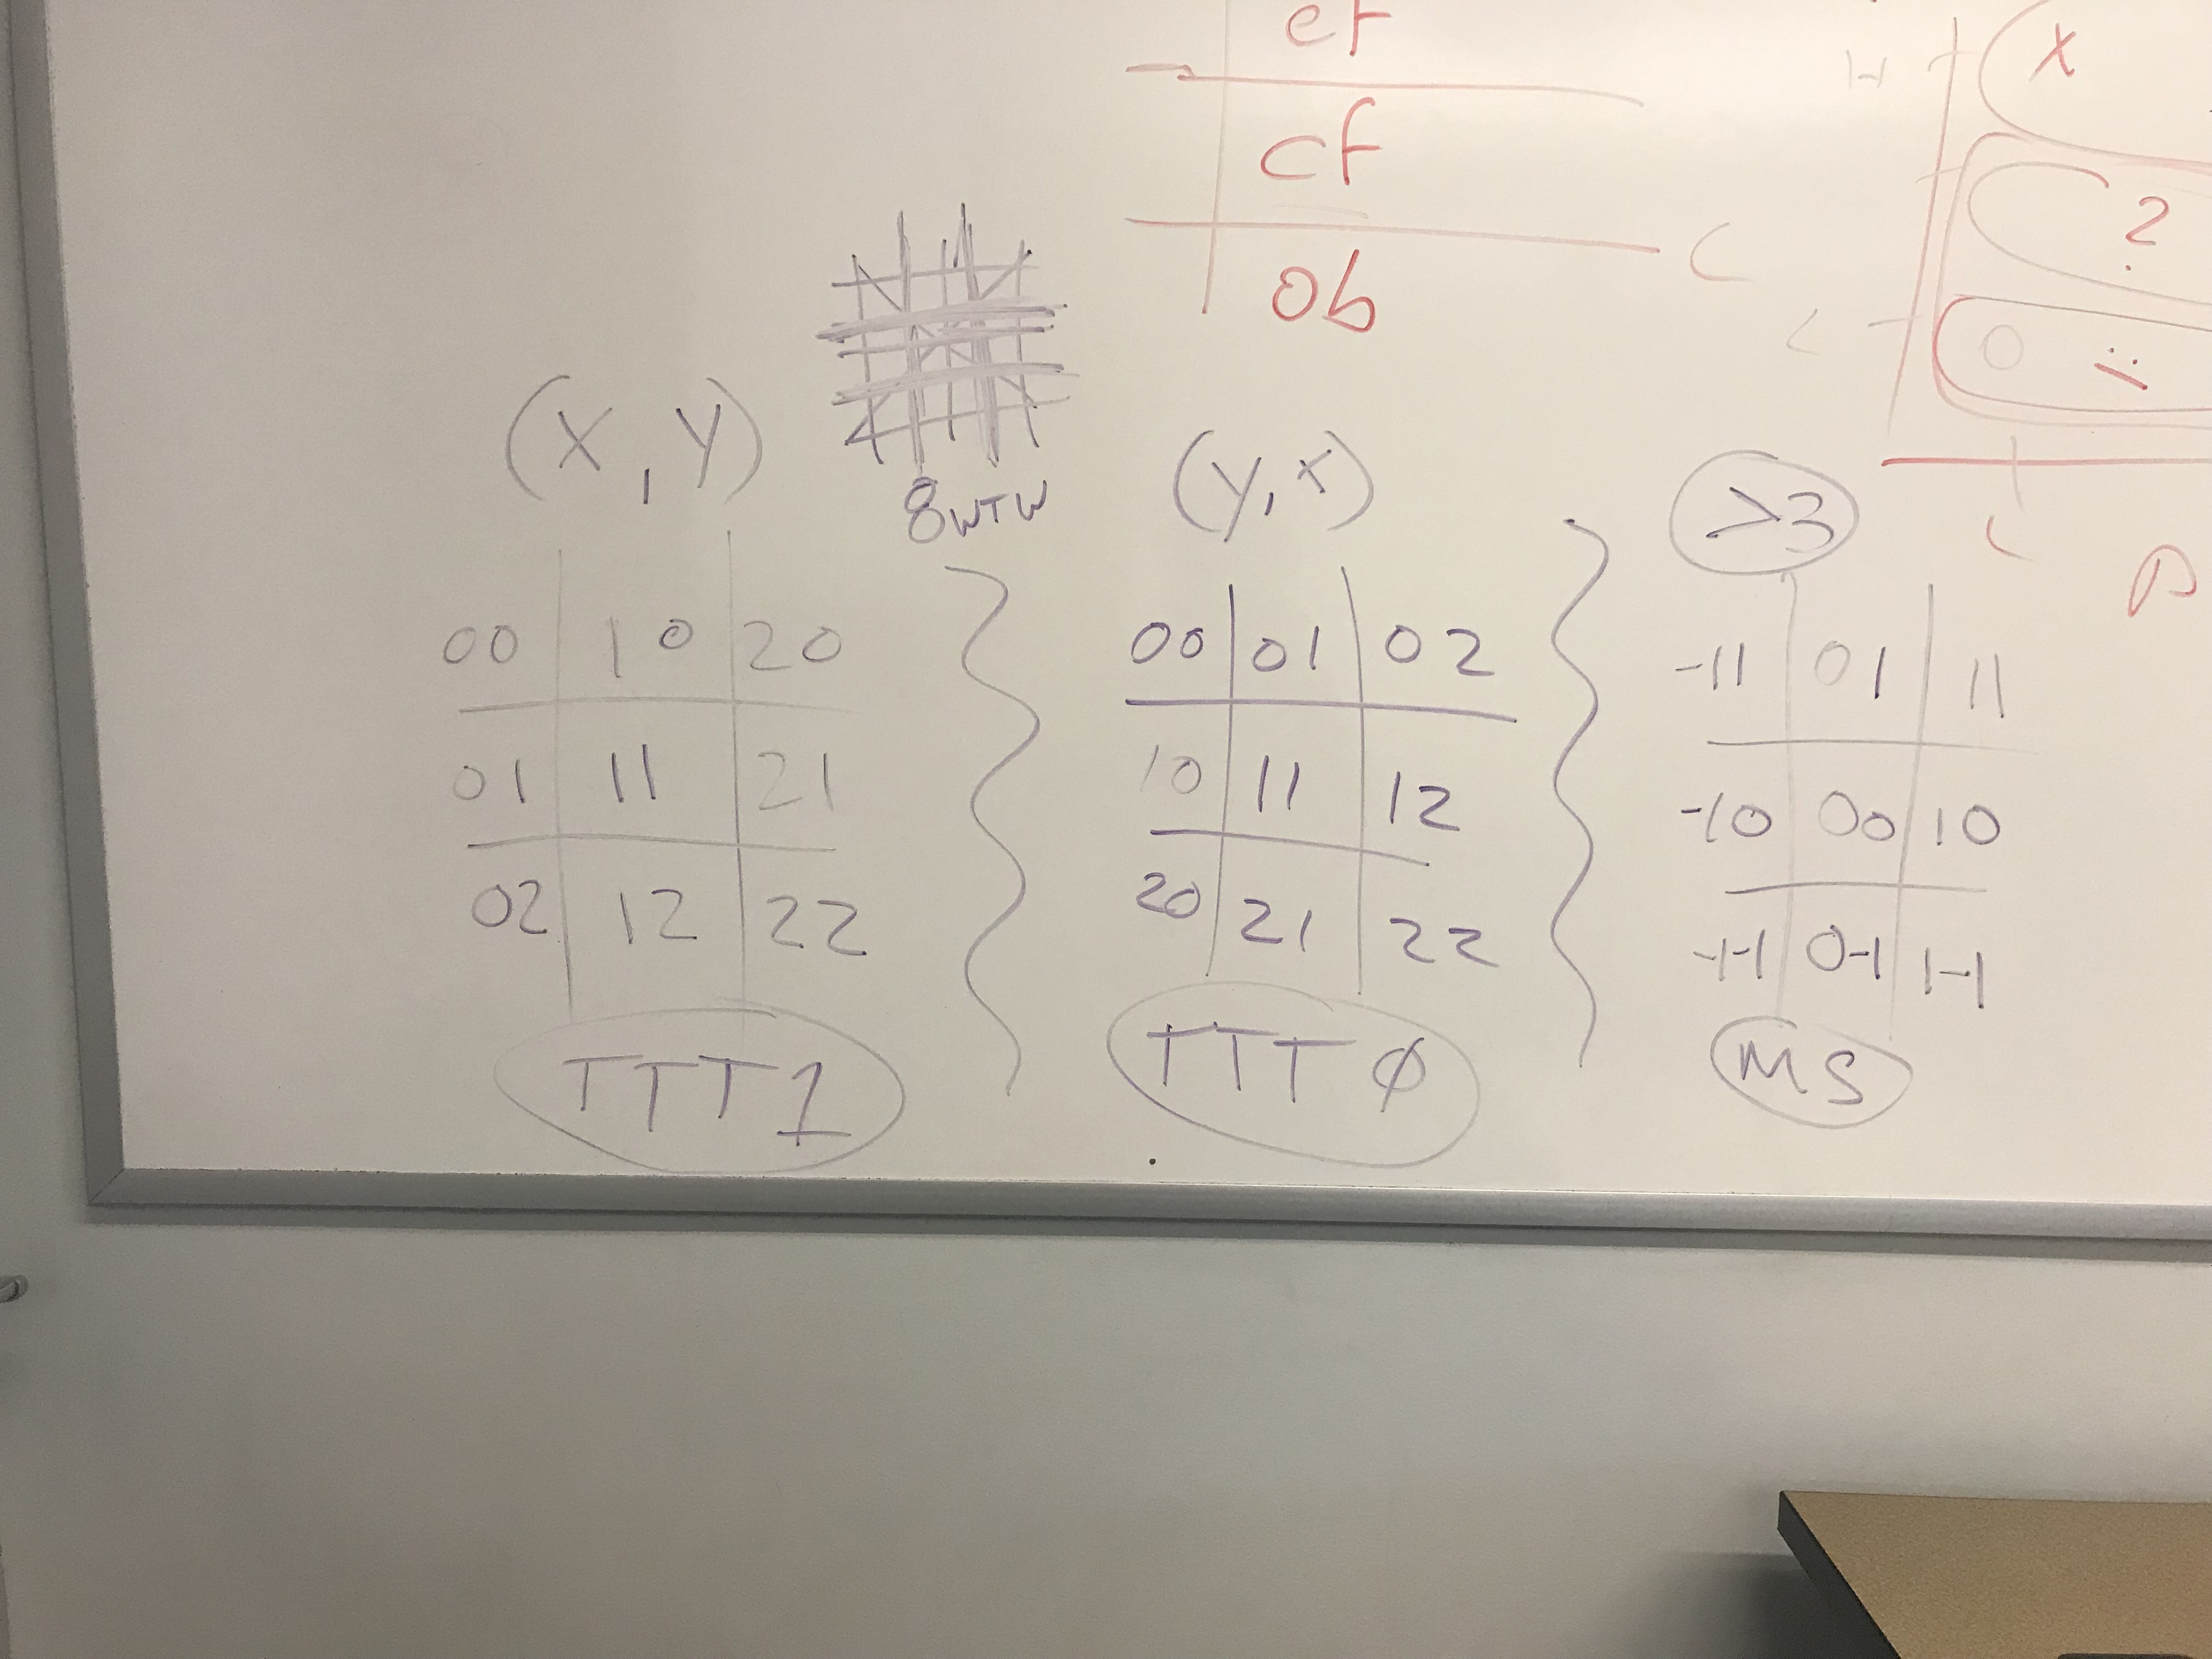 cf
ob
H
X
?
C
L
(X, Y)
8WTW
(Y, X)
>3
00 10 20
01 11 21
02 12 22
TTT1
00 01 02
10 11 12
20 21 22
TTT0
-11 01 11
-10 00 10
-1-1 0-1 1-1
MS